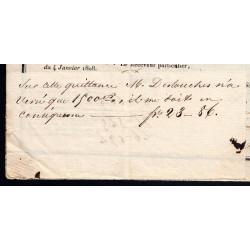 Le Receveur particulier,
du 4 Janvier 1808.
Sur cette quittance M. Deslouches n'a
versé que 1500 f, il me doit en
conséquence — fr. 23 - 86.